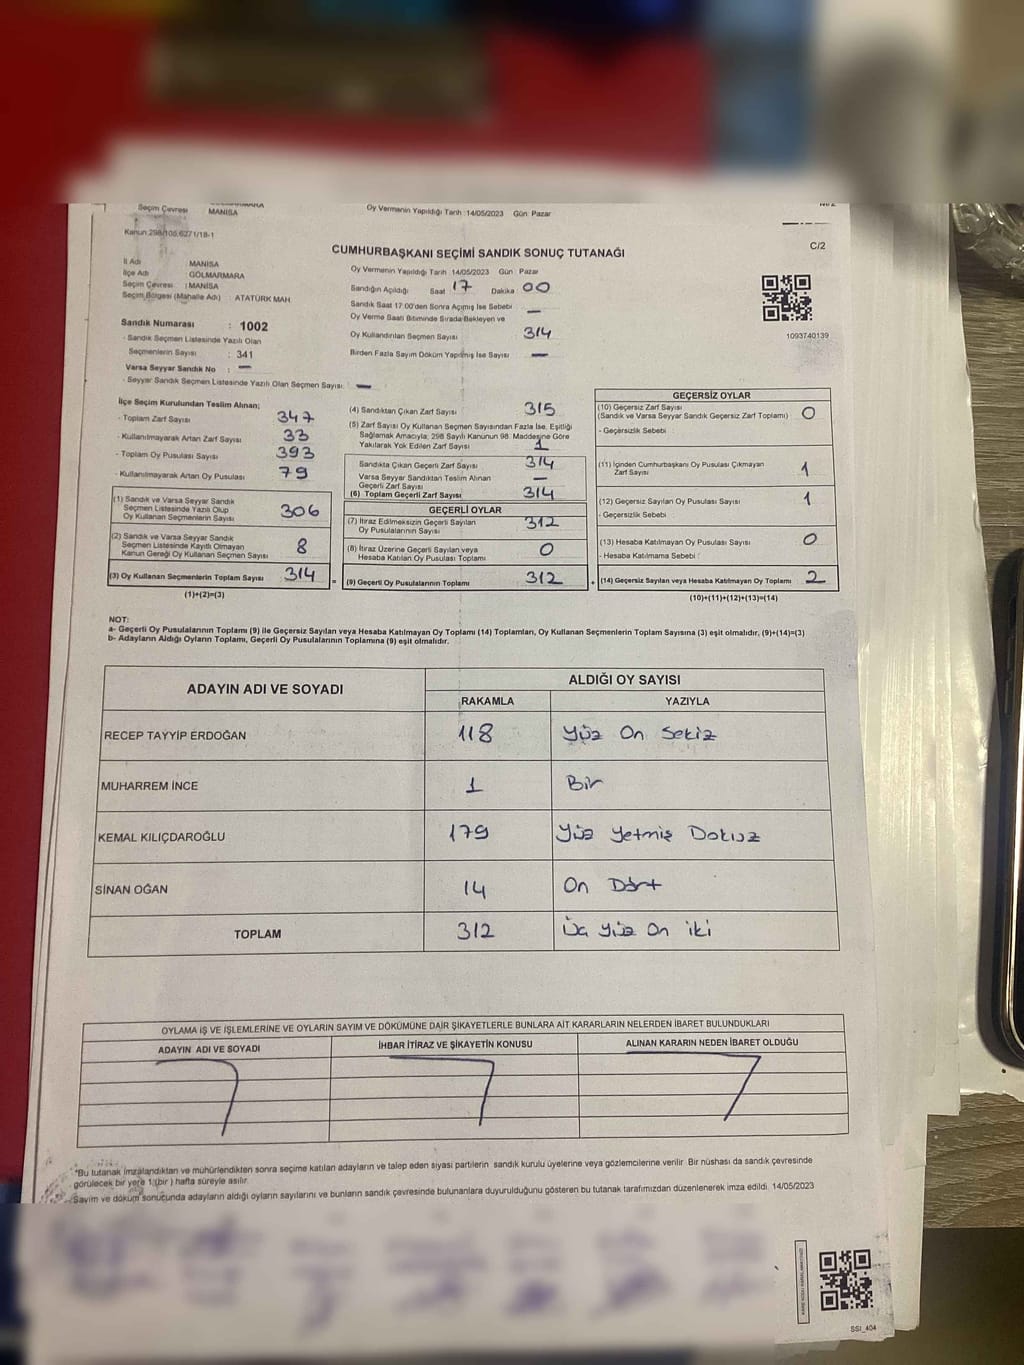 Seçim Çevresi MANİSA
Oy Vermenin Yapıldığı Tarih :14/05/2023 Gün: Pazar
Kanun:298/105,6271/18-1
CUMHURBAŞKANI SEÇİMİ SANDIK SONUÇ TUTANAĞI
C/2
İl Adı : MANİSA
İlçe Adı : GÖLMARMARA
Seçim Çevresi : MANİSA
Seçim Bölgesi (Mahalle Adı) : ATATÜRK MAH.
Oy Vermenin Yapıldığı Tarih :14/05/2023 Gün : Pazar
Sandığın Açıldığı Saat 17 Dakika 00
Sandık Saat 17:00'den Sonra Açılmış İse Sebebi : —
Oy Verme Saati Bitiminde Sırada Bekleyen ve
Oy Kullandırılan Seçmen Sayısı : 314
Birden Fazla Sayım Döküm Yapılmış İse Sayısı : —
1093740139
Sandık Numarası : 1002
- Sandık Seçmen Listesinde Yazılı Olan
Seçmenlerin Sayısı : 341
Varsa Seyyar Sandık No : —
- Seyyar Sandık Seçmen Listesinde Yazılı Olan Seçmen Sayısı: —
İlçe Seçim Kurulundan Teslim Alınan;
- Toplam Zarf Sayısı : 347
- Kullanılmayarak Artan Zarf Sayısı : 33
- Toplam Oy Pusulası Sayısı : 393
- Kullanılmayarak Artan Oy Pusulası : 79
(1) Sandık ve Varsa Seyyar Sandık
Seçmen Listesinde Yazılı Olup
Oy Kullanan Seçmenlerin Sayısı 306
(2) Sandık ve Varsa Seyyar Sandık
Seçmen Listesinde Kayıtlı Olmayan
Kanun Gereği Oy Kullanan Seçmen Sayısı 8
(3) Oy Kullanan Seçmenlerin Toplam Sayısı 314
(1)+(2)=(3)
=
(4) Sandıktan Çıkan Zarf Sayısı 315
(5) Zarf Sayısı Oy Kullanan Seçmen Sayısından Fazla İse, Eşitliği
Sağlamak Amacıyla, 298 Sayılı Kanunun 98. Maddesine Göre
Yakılarak Yok Edilen Zarf Sayısı 1
Sandıkta Çıkan Geçerli Zarf Sayısı 314
Varsa Seyyar Sandıktan Teslim Alınan
Geçerli Zarf Sayısı —
(6) Toplam Geçerli Zarf Sayısı 314
GEÇERLİ OYLAR
(7) İtiraz Edilmeksizin Geçerli Sayılan
Oy Pusulalarının Sayısı 312
(8) İtiraz Üzerine Geçerli Sayılan veya
Hesaba Katılan Oy Pusulası Toplamı 0
(9) Geçerli Oy Pusulalarının Toplamı 312
+
GEÇERSİZ OYLAR
(10) Geçersiz Zarf Sayısı
(Sandık ve Varsa Seyyar Sandık Geçersiz Zarf Toplamı) 0
- Geçersizlik Sebebi :
(11) İçinden Cumhurbaşkanı Oy Pusulası Çıkmayan
Zarf Sayısı 1
(12) Geçersiz Sayılan Oy Pusulası Sayısı 1
- Geçersizlik Sebebi :
(13) Hesaba Katılmayan Oy Pusulası Sayısı 0
- Hesaba Katılmama Sebebi :
(14) Geçersiz Sayılan veya Hesaba Katılmayan Oy Toplamı 2
(10)+(11)+(12)+(13)=(14)
NOT:
a- Geçerli Oy Pusulalarının Toplamı (9) ile Geçersiz Sayılan veya Hesaba Katılmayan Oy Toplamı (14) Toplamları, Oy Kullanan Seçmenlerin Toplam Sayısına (3) eşit olmalıdır, (9)+(14)=(3)
b- Adayların Aldığı Oyların Toplamı, Geçerli Oy Pusulalarının Toplamına (9) eşit olmalıdır.
ADAYIN ADI VE SOYADI
ALDIĞI OY SAYISI
RAKAMLA YAZIYLA
RECEP TAYYİP ERDOĞAN 118 Yüz On Sekiz
MUHARREM İNCE 1 Bir
KEMAL KILIÇDAROĞLU 179 Yüz Yetmiş Dokuz
SİNAN OĞAN 14 On Dört
TOPLAM 312 Üç Yüz On iki
OYLAMA İŞ VE İŞLEMLERİNE VE OYLARIN SAYIM VE DÖKÜMÜNE DAİR ŞİKAYETLERLE BUNLARA AİT KARARLARIN NELERDEN İBARET BULUNDUKLARI
ADAYIN ADI VE SOYADI İHBAR İTİRAZ VE ŞİKAYETİN KONUSU ALINAN KARARIN NEDEN İBARET OLDUĞU
*Bu tutanak imzalandıktan ve mühürlendikten sonra seçime katılan adayların ve talep eden siyasi partilerin sandık kurulu üyelerine veya gözlemcilerine verilir. Bir nüshası da sandık çevresinde
görülecek bir yere 1 (bir ) hafta süreyle asılır.
Sayım ve döküm sonucunda adayların aldığı oyların sayılarını ve bunların sandık çevresinde bulunanlara duyurulduğunu gösteren bu tutanak tarafımızdan düzenlenerek imza edildi. 14/05/2023
SSI_404